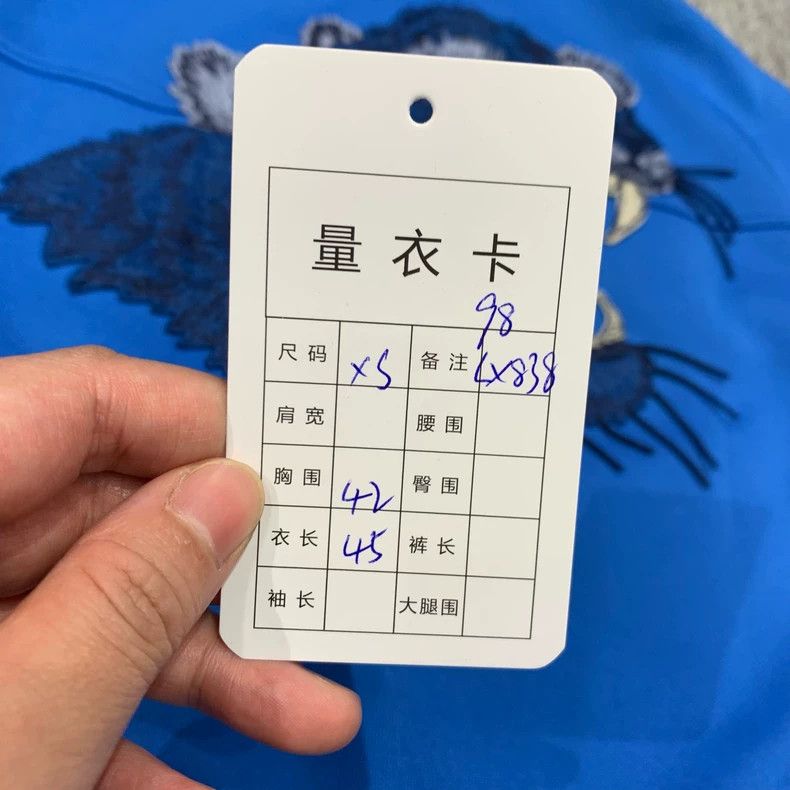 量衣卡
98
尺码 XS 备注 LX838
肩宽 腰围
胸围 42 臀围
衣长 45 裤长
袖长 大腿围